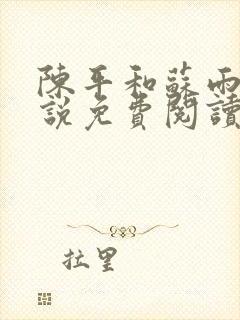 陳平和蘇雨
說免費閱讀
拉里